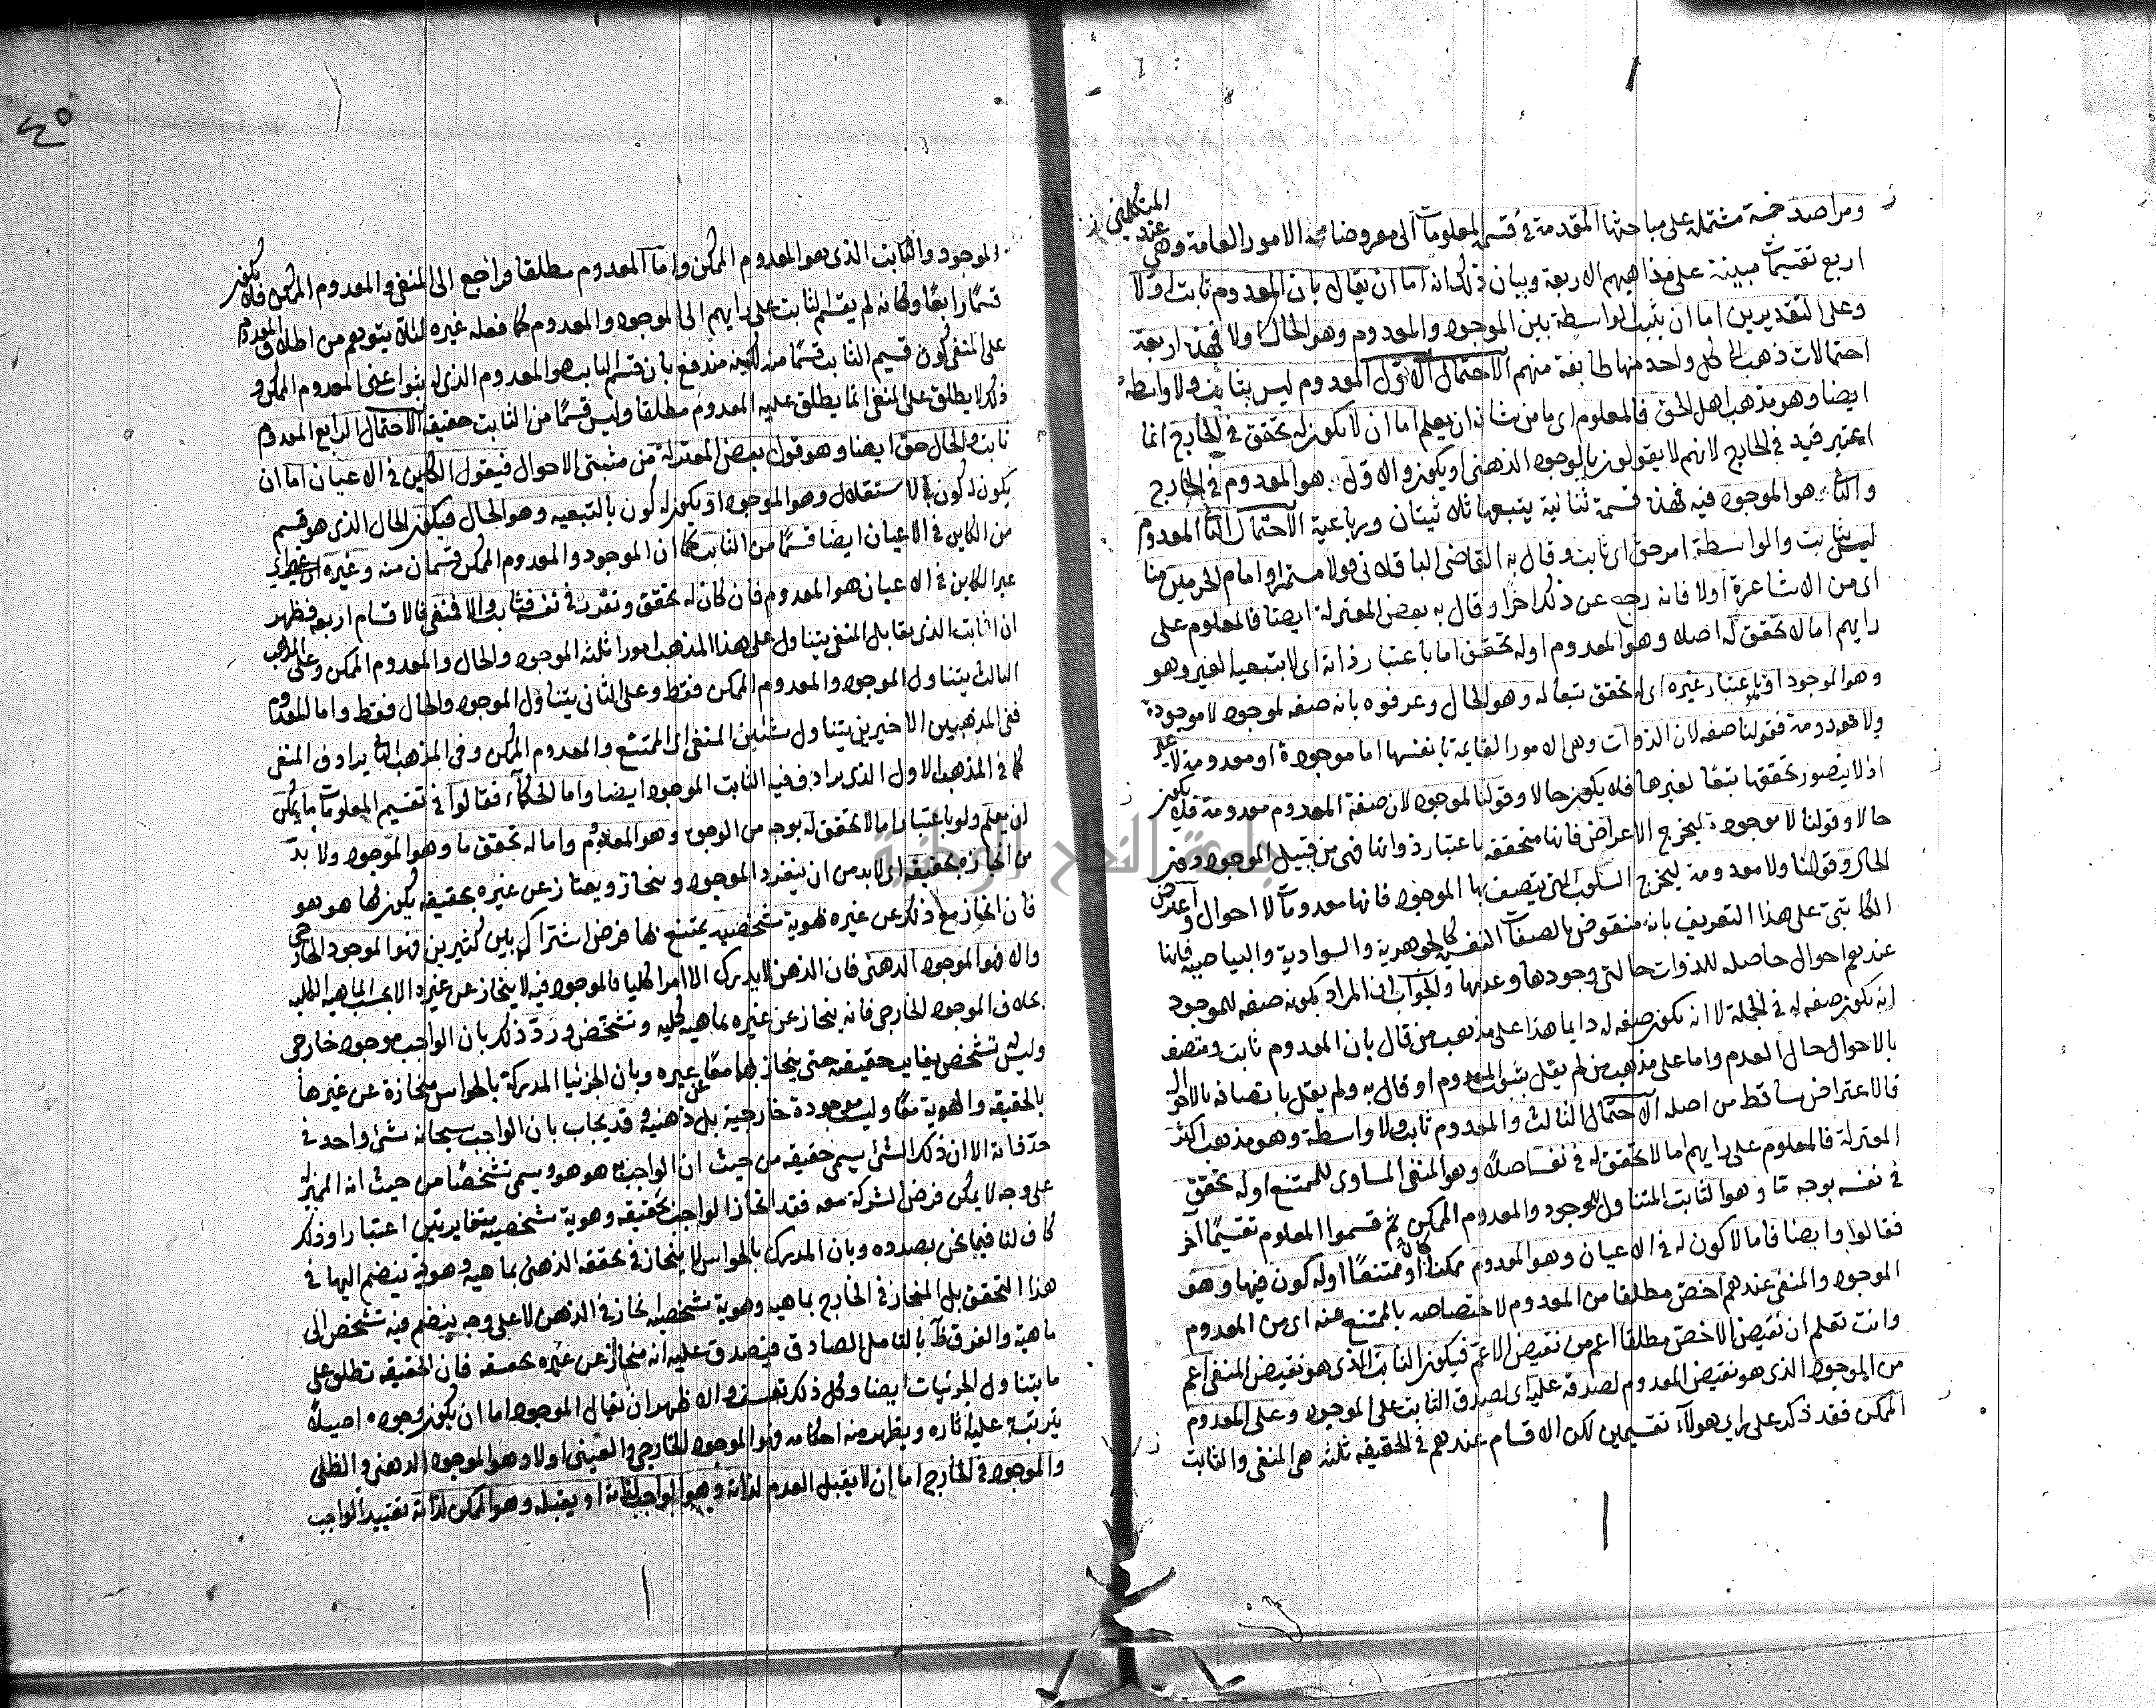 ومراصد خمسة مشتملة على مباحثها المقدمة في قسمة المعلومات الى معروضات الامور العامة وهي عند المتكلمين
اربع تقسيمات مبينة على مذاهبهم الاربعة وبيان ذلك انه اما ان يقال بان المعدوم ثابت اولا
وعلى التقديرين اما ان يثبت الواسطة بين الموجود والمعدوم وهو الحال اولا فهذه اربعة
احتمالات ذهب الى كل واحد منها طايفة منهم الاحتمال الاول المعدوم ليس بثابت ولا واسطة
ايضا وهو مذهب اهل الحق فالمعلوم اى ما من شانه ان يعلم اما ان لا يكون له تحقق في الخارج انما
اعتبر قيد في الخارج لانهم لا يقولون بالوجود الذهنى او يكون والاول هو المعدوم في الخارج
والثانى هو الموجود فيه فهذه قسمة ثنائية يتبعها ثلاثيتان ورباعية الاحتمال الثانى المعدوم
ليس بثابت والواسطة امر حق اى ثابت وقال به القاضى الباقلانى قولا مستمرا وامام الحرمين منا
اى من الاشاعرة اولا فانه رجع عن ذلك اخرا وقال به بعض المعتزلة ايضا فالمعلوم على
رايهم اما لا تحقق له اصلا وهو المعدوم اوله تحقق اما باعتبار ذاته اى لا بتبعية الغير وهو
وهو الموجود او باعتبار غيره اى له تحقق تبعا له وهو الحال وعرفوه بانه صفة لموجود لا موجودة
ولا معدومة فقولنا صفة لان الذوات وهى الامور القايمة بانفسها اما موجودة او معدومة لا غير
اذ لا يتصور تحققها تبعا لغيرها فلا يكون حالا وقولنا لموجود لان صفة المعدوم معدومة فلا يكون
حالا وقولنا لا موجودة ليخرج الاعراض فانها متحققة باعتبار ذواتها فهى من قبيل الموجود دون
الحال وقولنا ولا معدومة ليخرج السلوب التى يتصف بها الموجود فانها معدومات لا احوال واعترض
الكاتبى على هذا التعريف بانه منقوض بالصفات النفسية كالجوهرية والسوادية والبياضية فانها
عندهم احوال حاصلة للذوات حالتى وجودها وعدمها والجواب ان المراد بكونه صفة للموجود
انه يكون صفة له في الجملة لا انه يكون صفة له دايما هذا على مذهب من قال بان المعدوم ثابت ومتصف
بالاحوال حال العدم واما على مذهب من لم يقل بثبوت المعدوم او قال به ولم يقل باتصافه بالاحوال
فالاعتراض ساقط من اصله الاحتمال الثالث والمعدوم ثابت ولا واسطة وهو مذهب اكثر
المعتزلة فالمعلوم على رايهم اما لا تحقق له في نفسه اصلا وهو المنفى المساوى للممتنع اوله تحقق
في نفسه بوجه ما وهو الثابت المتناول للموجود والمعدوم الممكن ثم قسموا المعلوم تقسيما اخر
فقالوا وايضا فاما لا كون له في الاعيان وهو المعدوم ممكنا كان او ممتنعا اوله كون فيها وهو
الموجود والمنفى عندهم اخص مطلقا من المعدوم لاختصاصه بالممتنع عنه اى من المعدوم
وانت تعلم ان نقيض الاخص مطلقا اعم من نقيض الاعم فيكون الثابت الذى هو نقيض المنفى اعم
من الموجود الذى هو نقيض المعدوم لصدقه عليه اى لصدق الثابت على الموجود وعلى المعدوم
الممكن فقد ذكر على راى هولاء تقسيمين لكن الاقسام عندهم في الحقيقة ثلثة هى المنفى والثابت
٤٥
الموجود والثابت الذى هو المعدوم الممكن واما المعدوم مطلقا فراجع الى المنفى والمعدوم الممكن فلا يكون
قسما رابعا وكانه لم يقسم الثابت على رايهم الى الموجود والمعدوم كما فعله غيره لئلا يتوهم من اطلاق المعدوم
على المنفى كون قسيم الثابت قسما منه لكنه مندفع بان قسم الثابت هو المعدوم الذى له ثبوت اعنى المعدوم الممكن و
ذلك لا يطلق على المنفى انما يطلق عليه المعدوم مطلقا وليس قسما من الثابت حقيقة الاحتمال الرابع المعدوم
ثابت والحال حق ايضا وهو قول بعض المعتزلة من مثبتى الاحوال فيقول الكاين في الاعيان اما ان
يكون له كون بالاستقلال وهو الموجود او يكون له كون بالتبعيه وهو الحال فيكون الحال الذى هو قسم
من الكاين في الاعيان ايضا قسما من الثابت كما ان الموجود والمعدوم الممكن قسمان منه وغيره اى
غير الكاين في الاعيان هو المعدوم فان كان له تحقق وتقرر في نفسه فثابت والا فمنفى فالاقسام اربعة فظهر
ان الثابت الذى يقابل المنفى يتناول على هذا المذهب امورا ثلثة الموجود والحال والمعدوم الممكن وعلى المذهب
الثالث يتناول الموجود والمعدوم الممكن فقط وعلى الثانى يتناول الموجود والحال فقط واما المعدوم
ففى المذهبين الاخيرين يتناول شيئين المنفى اى الممتنع والمعدوم الممكن وفى المذهب الثانى يرادف المنفى
كما في المذهب الاول الذى يرادف فيه الثابت الموجود ايضا واما الحكماء فقالوا في تقسيم المعلومات ما يمكن
ان يعلم ولو باعتبار اما لا تحقق له بوجه من الوجوه وهو المعدوم واما له تحقق ما وهو الموجود ولا بد
من انحيازه بحقيقة اى لابد من ان ينفرد الموجود وينحاز ويمتاز عن غيره بحقيقة يكون بها هو هو
فان انحاز مع ذلك عن غيره بهوية شخصية يمتنع بها فرض اشتراكه بين كثيرين فهو الموجود الخارجى
والا فهو الموجود الذهنى فان الذهن لا يدرك الا امرا كليا فالموجود فيه لا ينحاز عن غيره الا بحسب الماهية الكلية
بخلاف الموجود الخارجى فانه ينحاز عن غيره بماهية كلية وتشخص ورد ذلك بان الواجب موجود خارجى
وليس له تشخص يغاير حقيقته حتى ينحاز بهما معا عن غيره وبان الجزئيات المدركة بالحواس منحازة عن غيرها
بالحقيقة والهوية معا وليست موجودة خارجية بل ذهنية وقد يجاب بان الواجب سبحانه شئ واحد في
حد ذاته الا ان ذلك الشئ يسمى حقيقة من حيث ان الواجب به هو هو ويسمى تشخصا من حيث انه المميز له
على وجه لا يمكن فرض الشركة معه فقد انحاز الواجب بحقيقة وهوية شخصية متغايرتين اعتبارا وذلك
كاف لنا فيما نحن بصدده وبان المدرك بالحواس لا ينحاز في تحققه الذهنى بماهية وهوية ينضم اليها في
هذا التحقق بل المنحاز في الخارج بماهية وهوية شخصية انحاز في الذهن لا على وجه ينضم فيه تشخص الى
ماهية والفرق ظ بالتامل الصادق فيصدق عليه انه منحاز عن غيره بحقيقة فان الحقيقة تطلق على
ما يتناول الجزئيات ايضا وكل ذلك تعسف والاظهر ان يقال الموجود اما ان يكون وجوده اصيلا
يترتب عليه اثاره ويظهر منه احكامه فهو الموجود الخارجى والعينى اولا وهو الموجود الذهنى والظلى
والموجود في الخارج اما ان لا يقبل العدم لذاته وهو الواجب لذاته او يقبله وهو الممكن لذاته تقييد الواجب
جامعة النجاح الوطنية